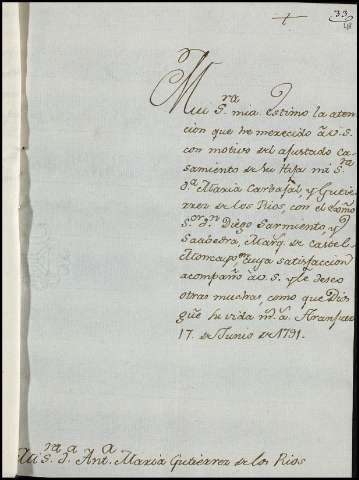 33
Mui S.ra mia. estimo la aten-
cion que he merecido à V. S.
con motivo del ajustado ca-
samiento de su Hija mi S.ra
D.a Maria Carbajal, y Gutier-
rez de los Rios, con el
S.or D.n Diego Sarmiento, y
Saabedra, Marq. de Castel-
Moncayo, cuya satisfaccion
acompaño à V. S. y le deseo
otras muchas, como que Dios
gue. he vida m.s a.s Aranjuez
17. de Junio de 1791.
Mi S.ra D.a Ant.a Maria Gutierrez de los Rios